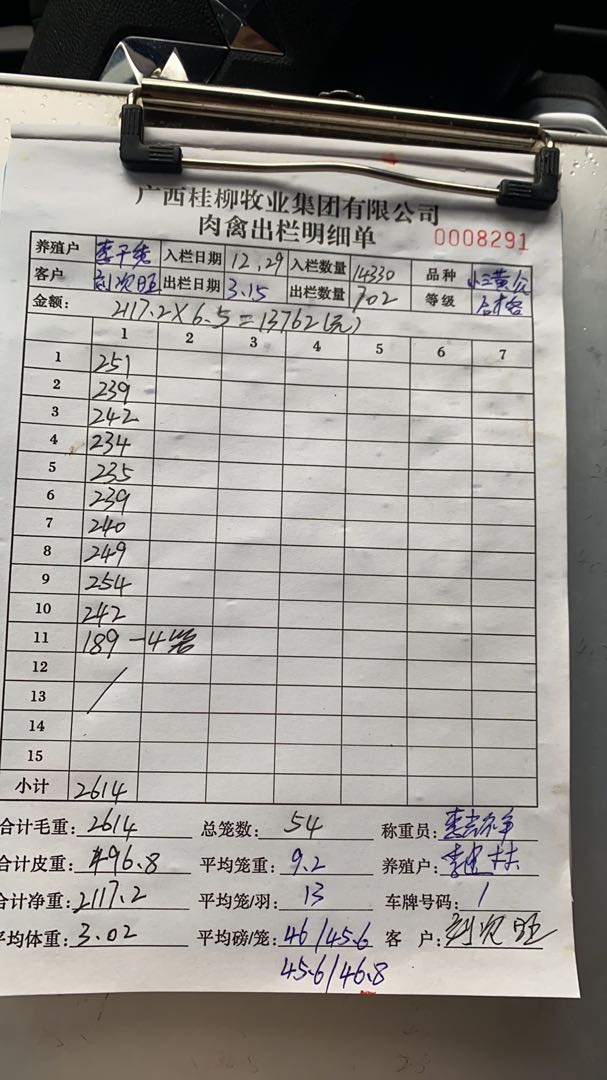 广西桂柳牧业集团有限公司
肉禽出栏明细单 0008291
养殖户 入栏日期 12.29 入栏数量 14330 品种
客户 刘次旺 出栏日期 3.15 出栏数量 702 等级 合格
金额: 2117.2×6.5=13762(元)
1 2 3 4 5 6 7
1 251
2 239
3 242
4 234
5 235
6 239
7 240
8 249
9 254
10 242
11 189-4笼
12
13
14
15
小计 2614
合计毛重: 2614 总笼数: 54 称重员:
合计皮重: 496.8 平均笼重: 9.2 养殖户:
合计净重: 2117.2 平均笼/羽: 13 车牌号码: /
平均体重: 3.02 平均磅/笼: 46/45.6 客 户: 刘次旺
45.6/46.8